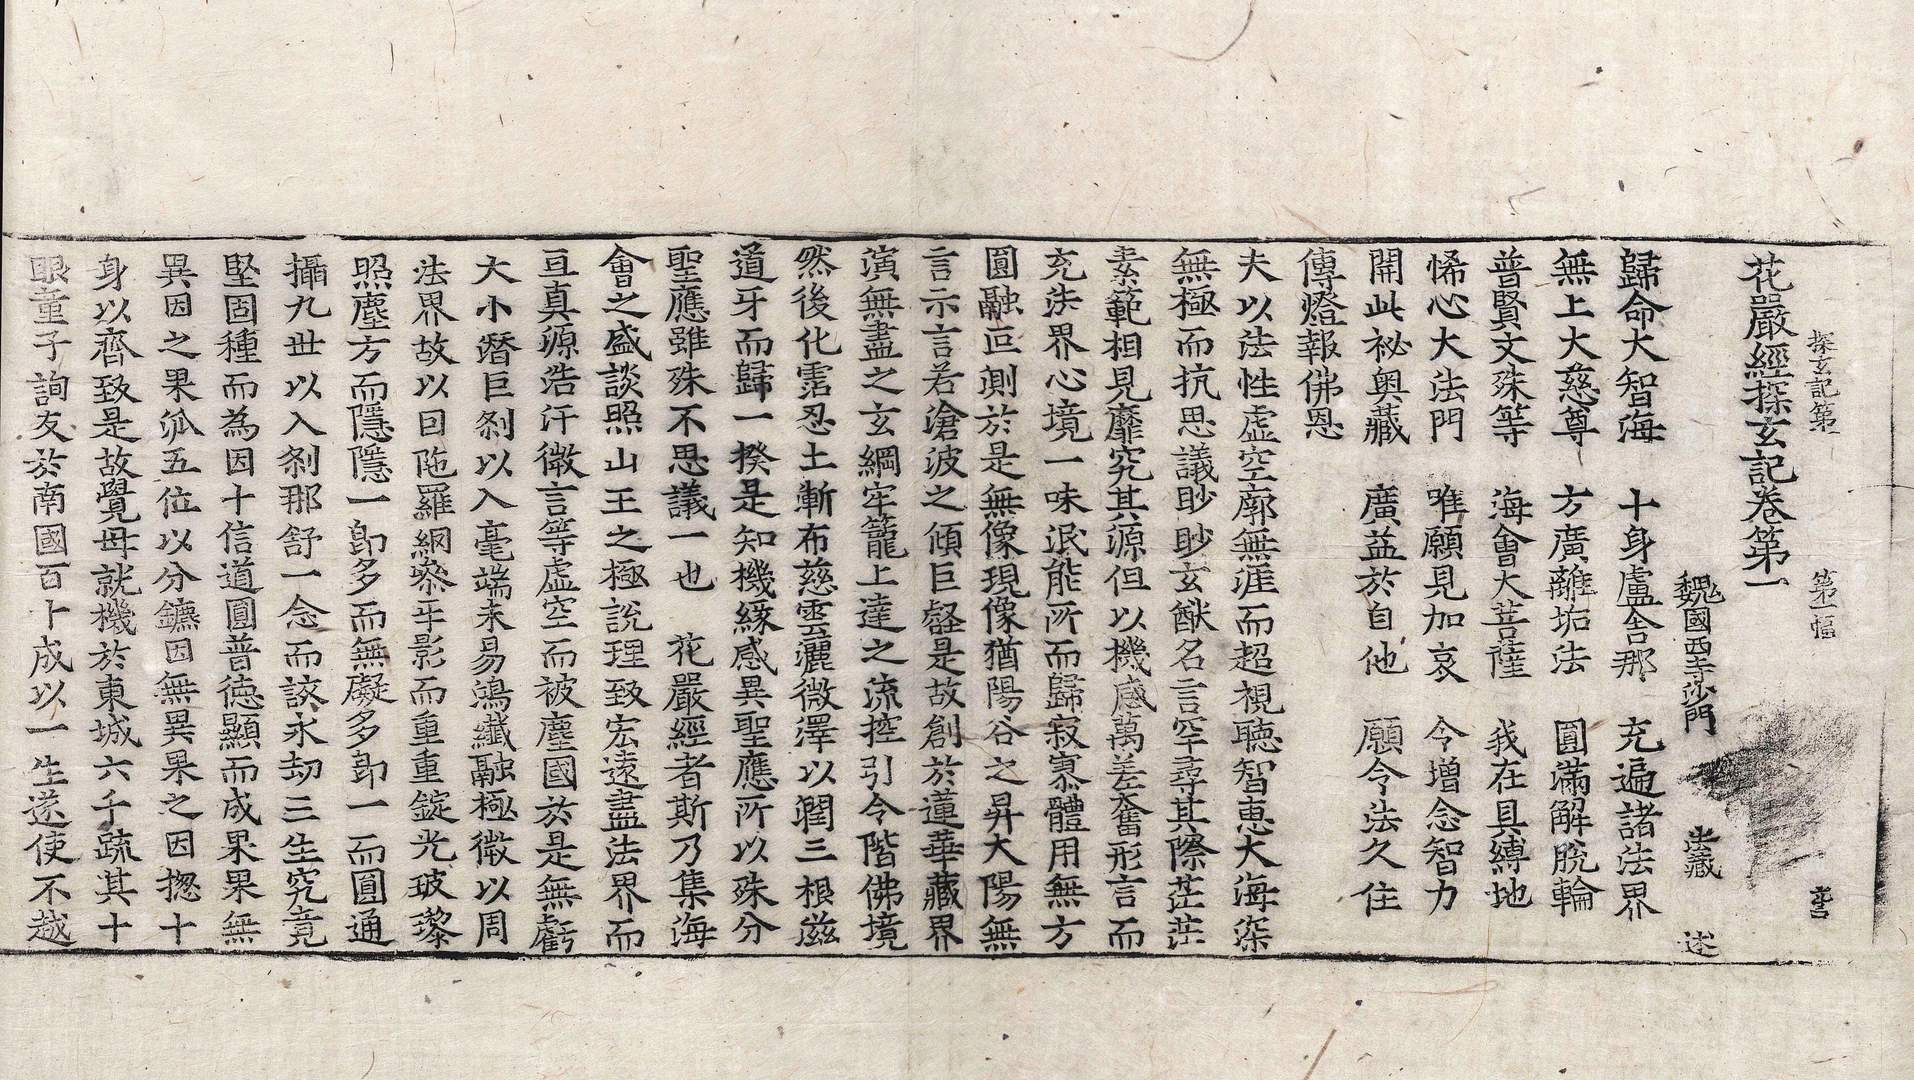 探玄記第一 第一幅 書
花嚴經探玄記卷第一
魏國西寺沙門 法藏 述
歸命大智海 十身盧舍那 充遍諸法界
無上大慈尊 方廣離垢法 圓滿解脫輪
普賢文殊等 海會大菩薩 我在具縛地
悕心大法門 唯願見加哀 今增念智力
開此祕奧藏 廣益於自他 願令法久住
傳燈報佛恩
夫以法性虛空廓無涯而超視聽智惠大海深
無極而抗思議眇眇玄猷名言罕尋其際茫茫
素範相見靡究其源但以機感萬差奮形言而
充法界心境一味泯能所而歸寂寥體用無方
圓融叵測於是無像現像猶陽谷之昇大陽無
言示言若滄波之傾巨壑是故創於蓮華藏界
演無盡之玄綱牢籠上達之流控引令階佛境
然後化霑忍土漸布慈雲灑微澤以潤三根滋
道牙而歸一揆是知機緣感異聖應所以殊分
聖應雖殊不思議一也 花嚴經者斯乃集海
會之盛談照山王之極說理致宏遠盡法界而
亘真源浩汗微言等虛空而被塵國於是無虧
大小潛巨剎以入毫端未易鴻纖融極微以周
法界故以因陁羅網參互影而重重錠光玻瓈
照塵方而隱隱一即多而無礙多即一而圓通
攝九世以入剎那舒一念而該永劫三生究竟
堅固種而為因十信道圓普德顯而成果果無
異因之果派五位以分鑣因無異果之因揔十
身以齊致是故覺母就機於東城六千疏其十
眼童子詢友於南國百十成以一生遂使不越